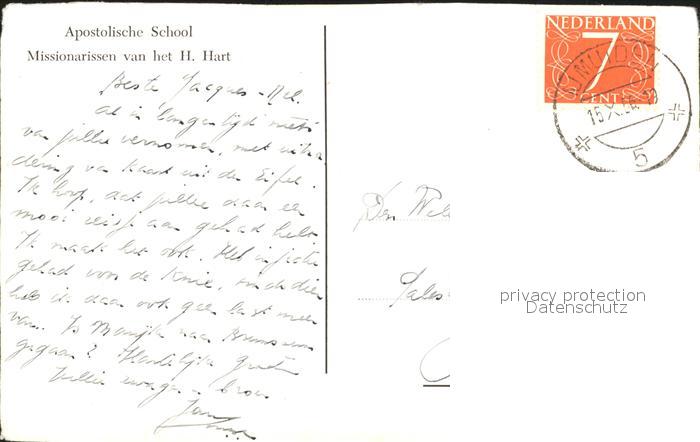 Apostolische School
Missionarissen van het H. Hart
Beste Jacques - Mel.
al in langen tijd niets
van jullie vernomen, met uitzon
dering van kaart uit de Eifel.
Ik hoop, dat jullie daar een
mooi reisje aan gehad hebt.
Ik maak het ook. Heb injectie
gehad voor de knie, sindsdien
heb ik daar ook geen last meer
van. Is naar
gegaan? Hartelijke groeten
Jullie broer
Jan
NEDERLAND
7
CENT
IJMUIDEN
15 X
5
Den Wel
Sales
privacy protection
Datenschutz